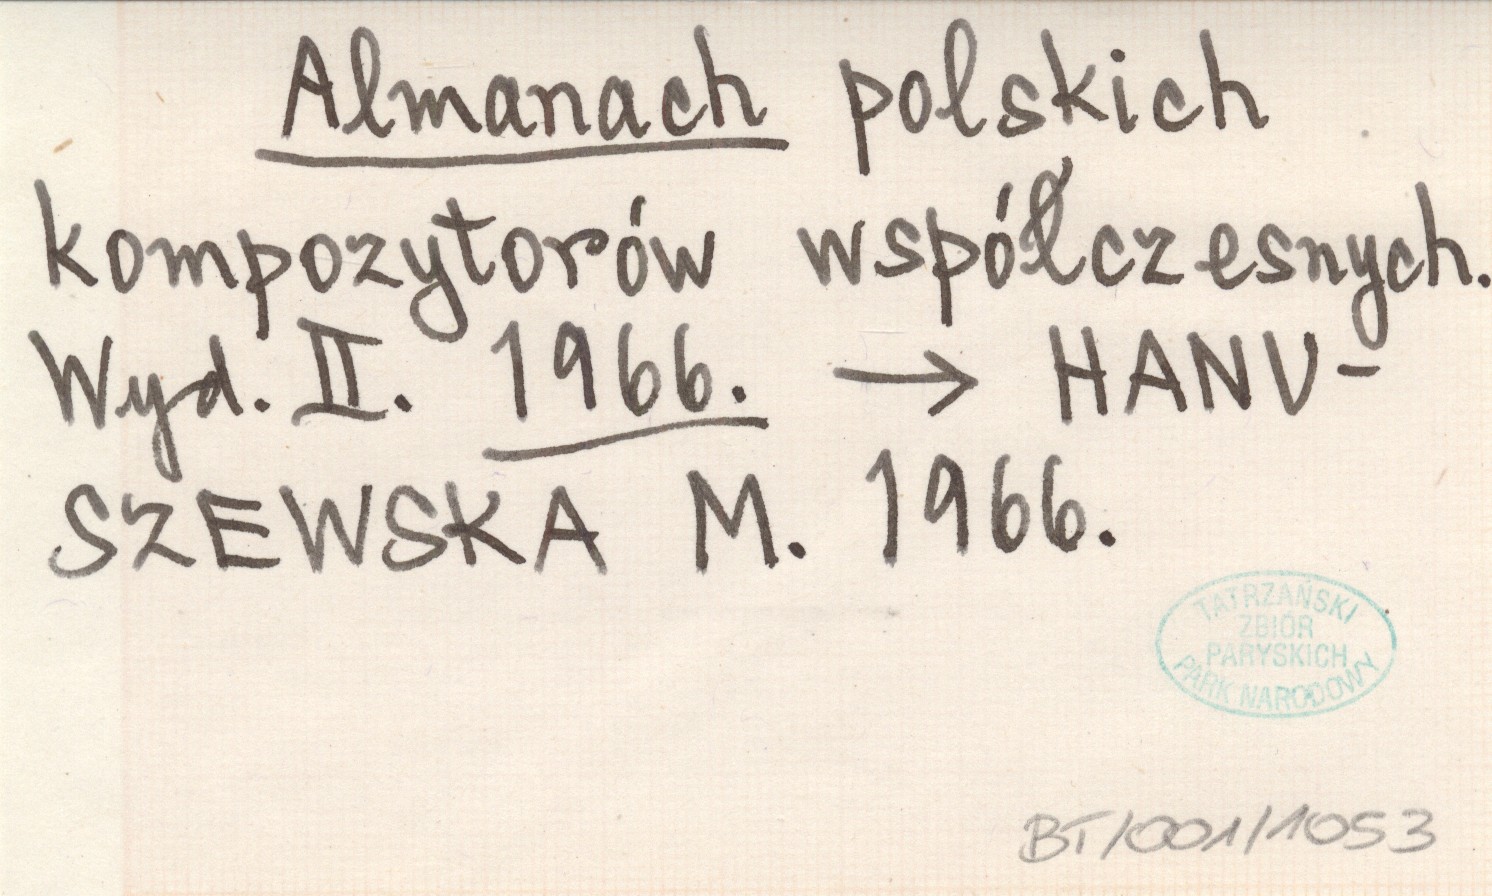 Almanach polskich
kompozytorów współczesnych.
Wyd. II. 1966. → HANU-
SZEWSKA M. 1966.
TATRZAŃSKI
ZBIÓR
PARYSKICH
PARK NARODOWY
BT/001/1053